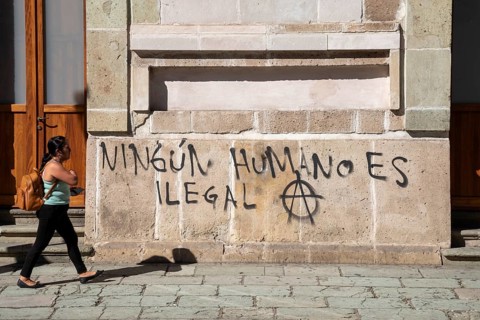 NINGÚN HUMANO ES
ILEGAL Ⓐ